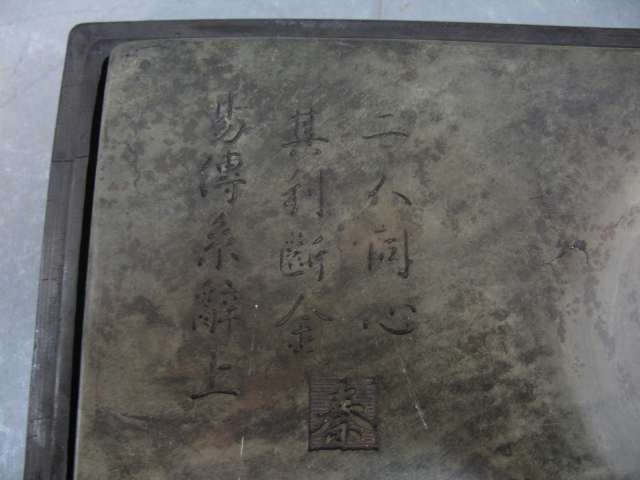 二人同心
其利斷金
易傳系辭上
秦